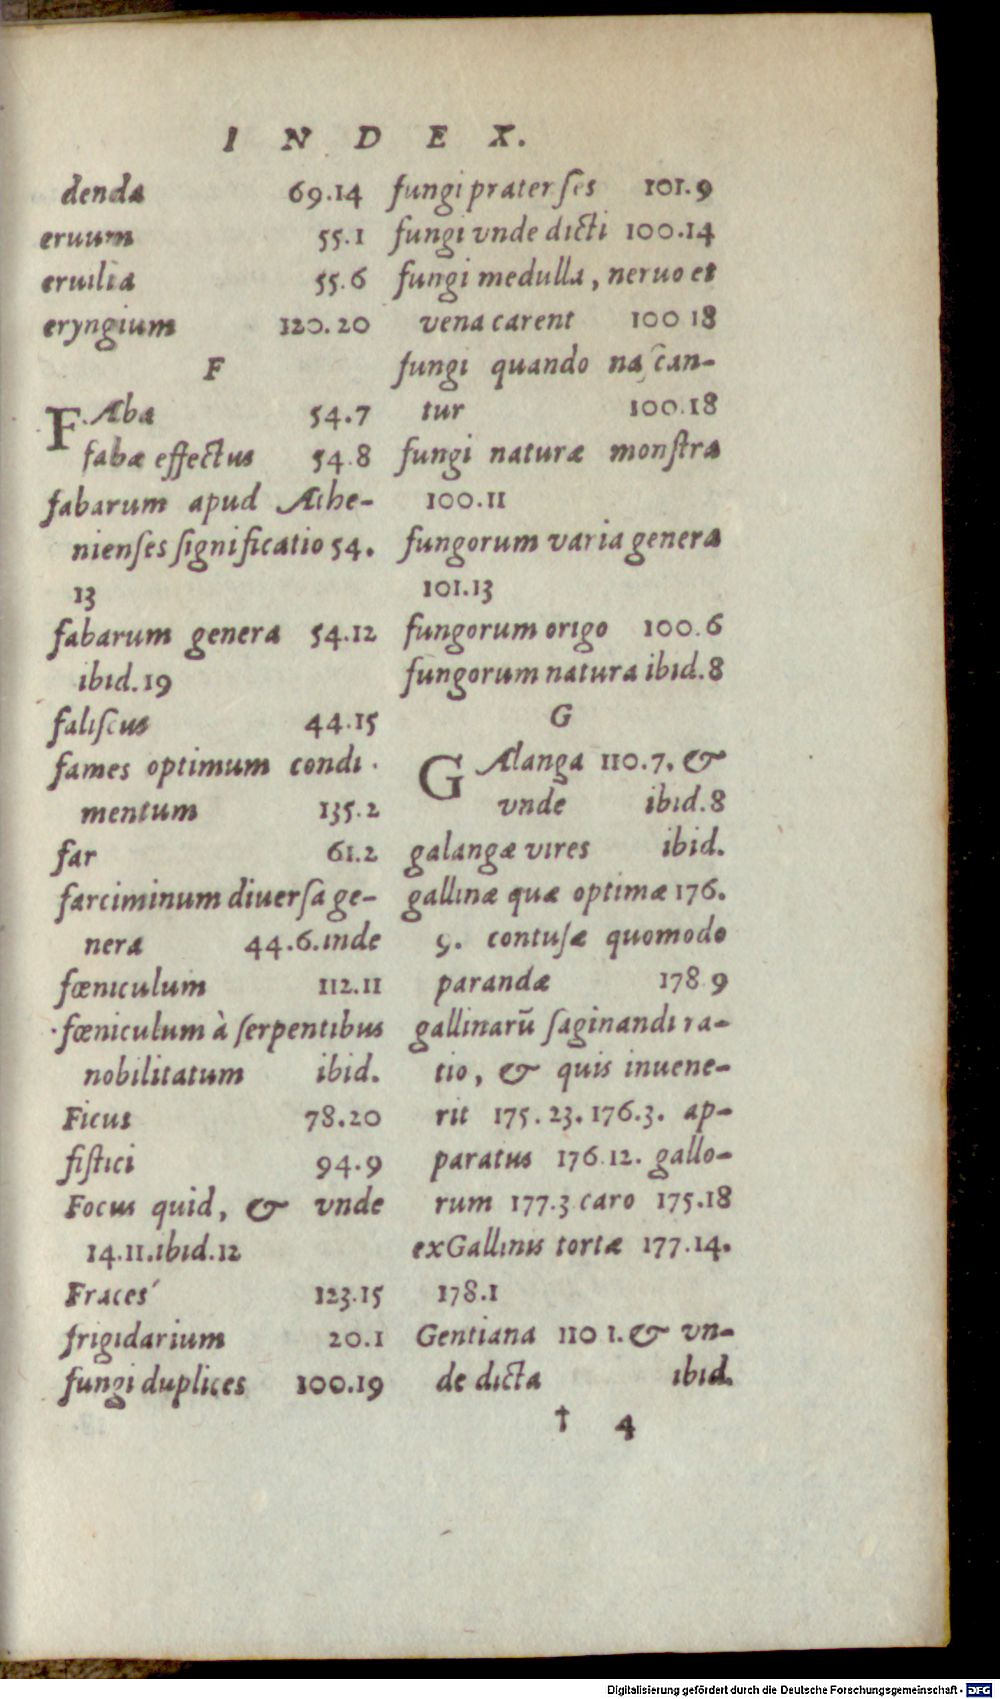 INDEX.
denda 69.14
eruum 55.1
eruilia 55.6
eryngium 120.20
F
FAba 54.7
fabæ effectus 54.8
fabarum apud Athe-
nienſes ſignificatio 54.
13
fabarum genera 54.12
ibid.19
faliſcus 44.15
fames optimum condi
mentum 135.2
far 61.2
farciminum diuerſa ge-
nera 44.6.inde
fœniculum 112.11
fœniculum à ſerpentibus
nobilitatum ibid.
Ficus 78.20
fiſtici 94.9
Focus quid, & vnde
14.11.ibid.12
Fraces 123.15
frigidarium 20.1
fungi duplices 100.19
fungi pratenſes 101.9
fungi vnde dicti 100.14
fungi medulla, neruo et
vena carent 100 18
fungi quando naſcan-
tur 100.18
fungi naturæ monſtra
100.11
fungorum varia genera
101.13
fungorum origo 100.6
fungorum natura ibid.8
G
GAlanga 110.7. &
vnde ibid.8
galangæ vires ibid.
gallinæ quæ optimæ 176.
9. contuſæ quomodo
parandæ 178 9
gallinarū ſaginandi ra-
tio, & quis inuene-
rit 175.23.176.3. ap-
paratus 176.12. gallo-
rum 177.3 caro 175.18
exGallinis tortæ 177.14.
178.1
Gentiana 110 1. & vn-
de dicta ibid.
† 4
Digitalisierung gefördert durch die Deutsche Forschungsgemeinschaft - DFG